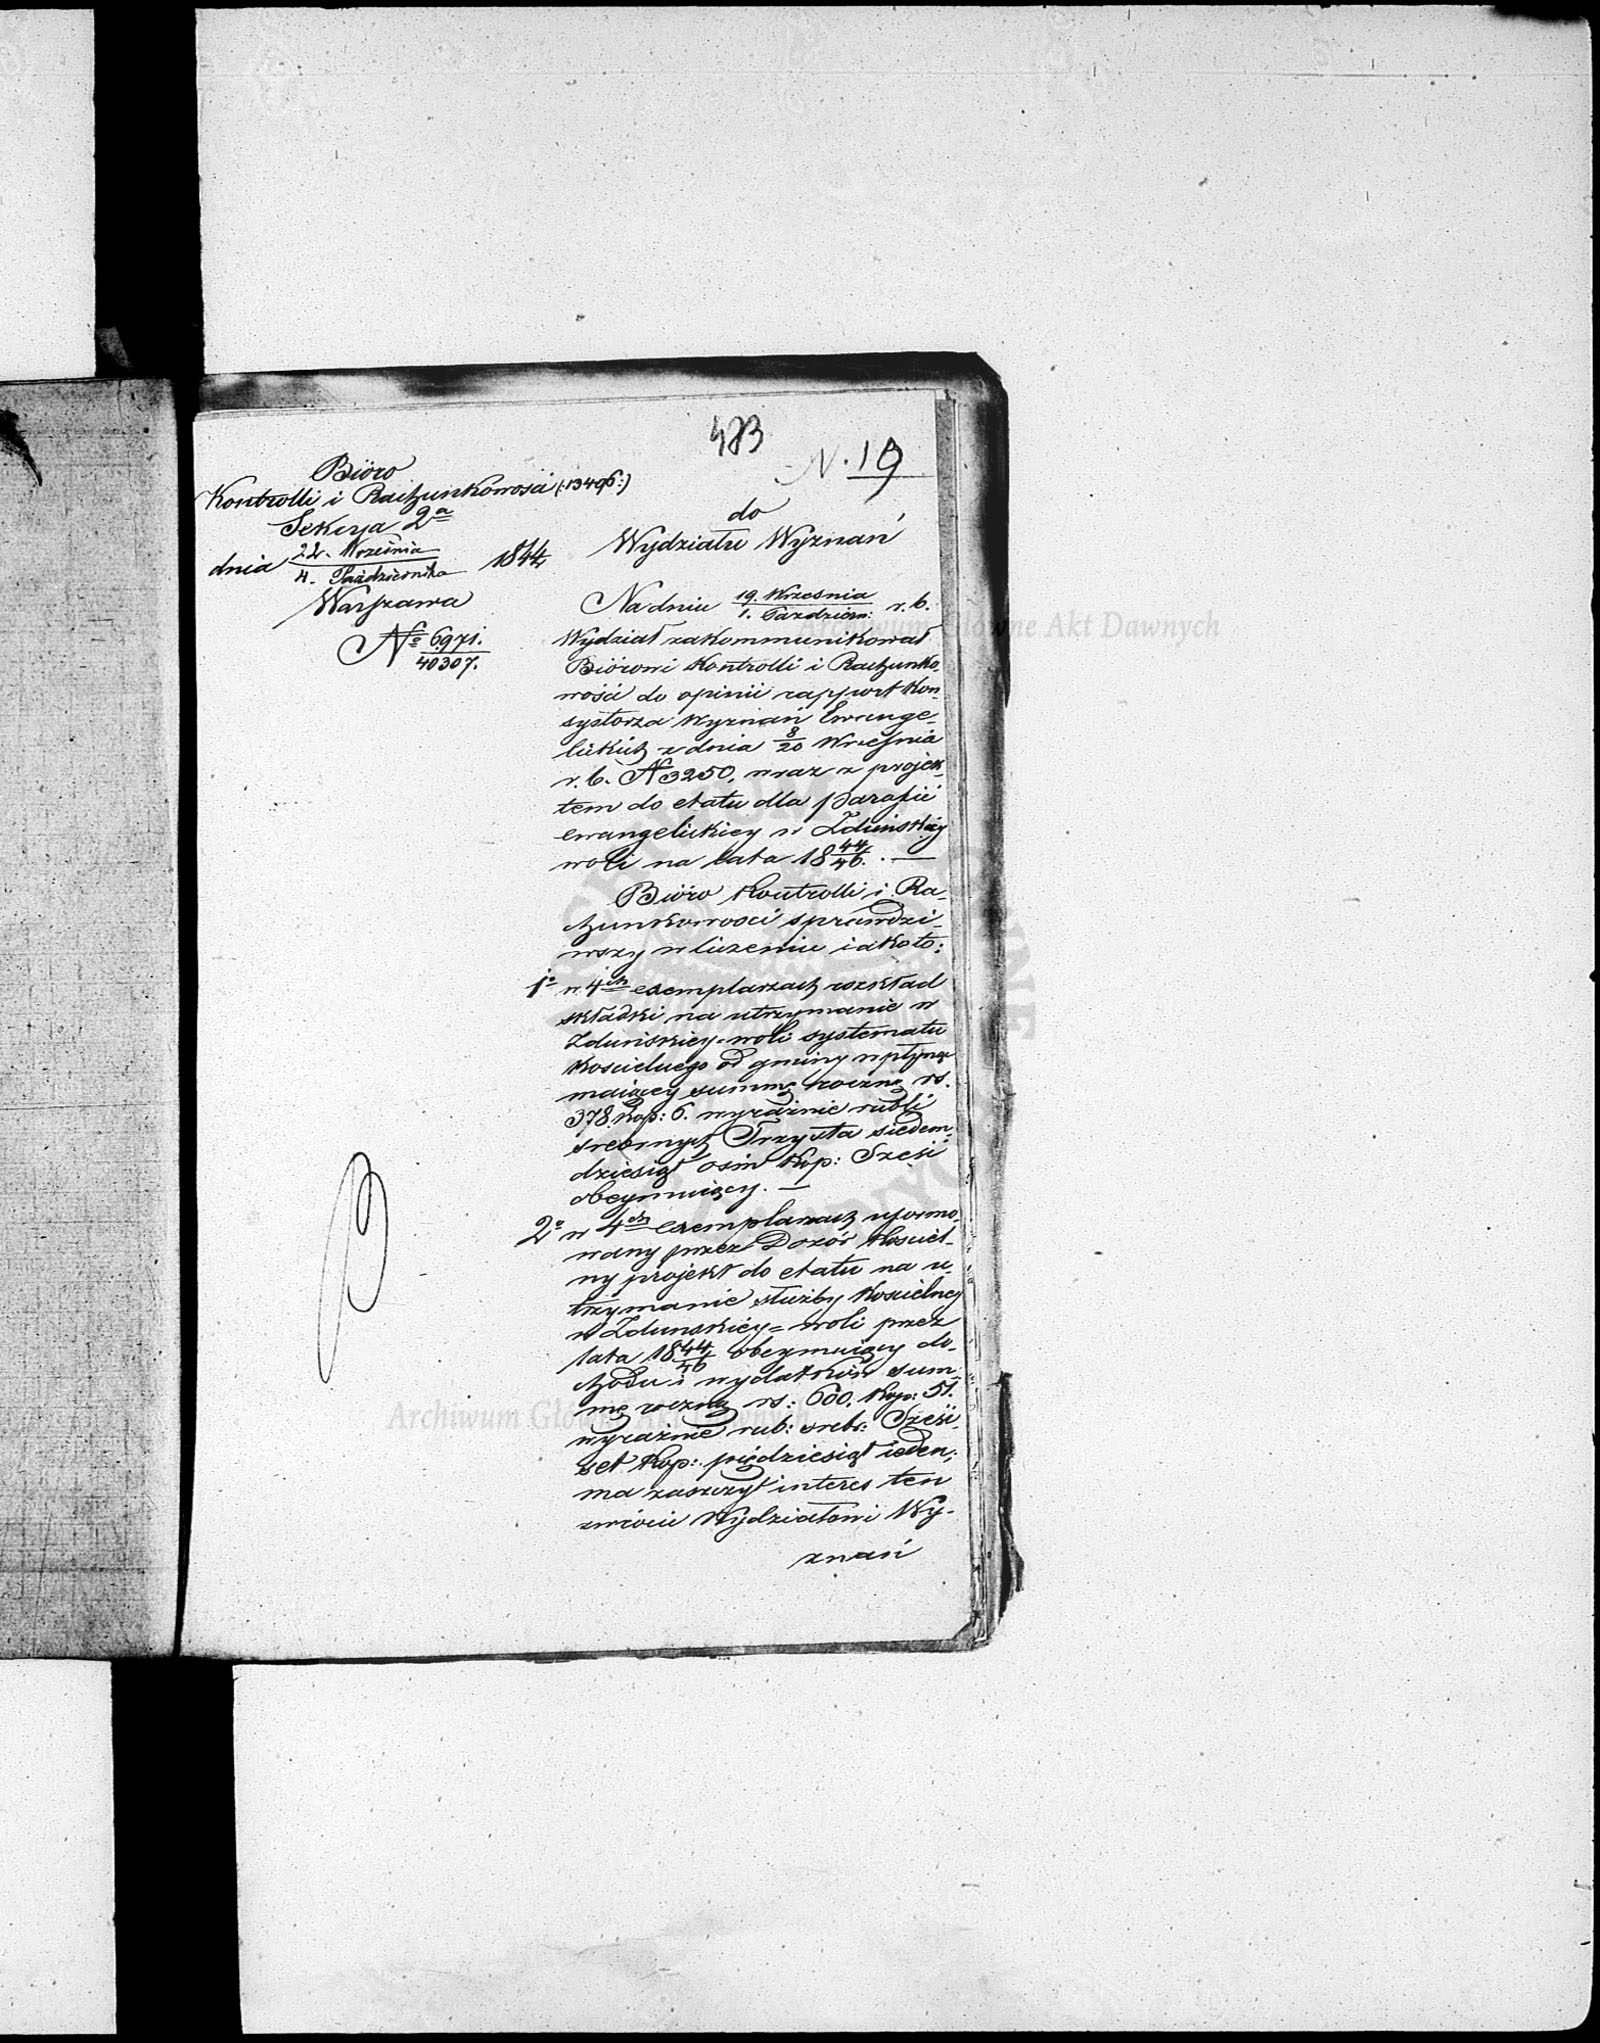 483
N. 19
Bióro
Kontrolli i Rachunkowości (:13496:)
Sekcya 2a
dnia 22. Września / 4. Października 1844
Warszawa
No 6971. / 40307.
do
Wydziału Wyznań
Na dniu 19. Września / 1. Paździer: r. b.
Wydział zakommunikował
Bióroni Kontrolli i Rachunko-
wości do opinii rapport Kon-
systorza Wyznań Ewange-
lickich z dnia 8/20 Września
r. b. N 3250, wraz z projek-
tem do etatu dla parafii
ewangelickiey w Zduńskiey
woli na lata 1844/46. —
Bióro Kontrolli i Ra-
chunkowości sprawdzi-
wszy w liczeniu iakoto:
1o w 4ch exemplarzach rozkład
składki na utrzymanie w
Zduńskiey-woli systematu
Kościelnego od gminy wpłynąć
maiącey summę roczną rs.
378. Kop: 6. wyraźnie rubli
srebrnych Trzysta siedem-
dziesiąt osim Kop: Sześć
obeymuiący. —
2o w 4ch exemplarzach uformo-
wany przez Dozór Kościel-
ny projekt do etatu na u-
trzymanie służby Kościelney
w Zdunskiey=woli przez
lata 1844/46 obeymuiący do-
chodu i wydatków sum-
mę roczną rs: 600. Kop: 51.
wyraźnie rub: sreb: Sześć-
set Kop: pięćdziesiąt ieden;
ma zaszczyt interes ten
zwrócić Wydziałowi Wy-
znań
Archiwum Główne Akt Dawnych
Archiwum Główne Akt Dawnych